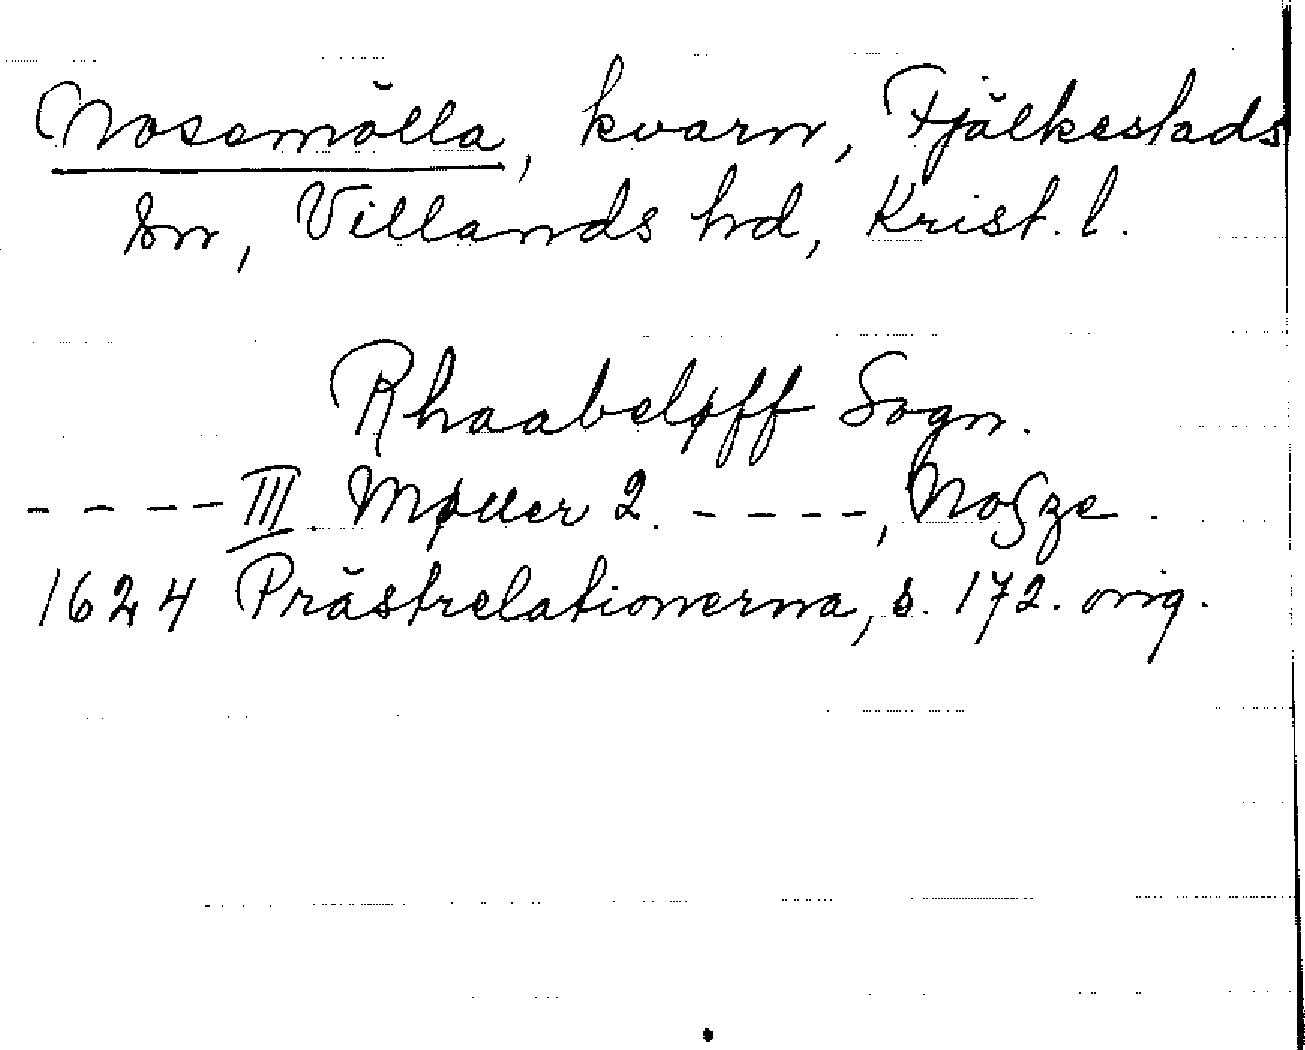 Nosemölla, kvarn, Fjälkestads
sn, Villands hd, Krist. l.
Rhaabeløff Sogn.
- - - - III. Møller 2. - - - -, Noszze.
1624 Prästrelationerna, s. 172. orig.